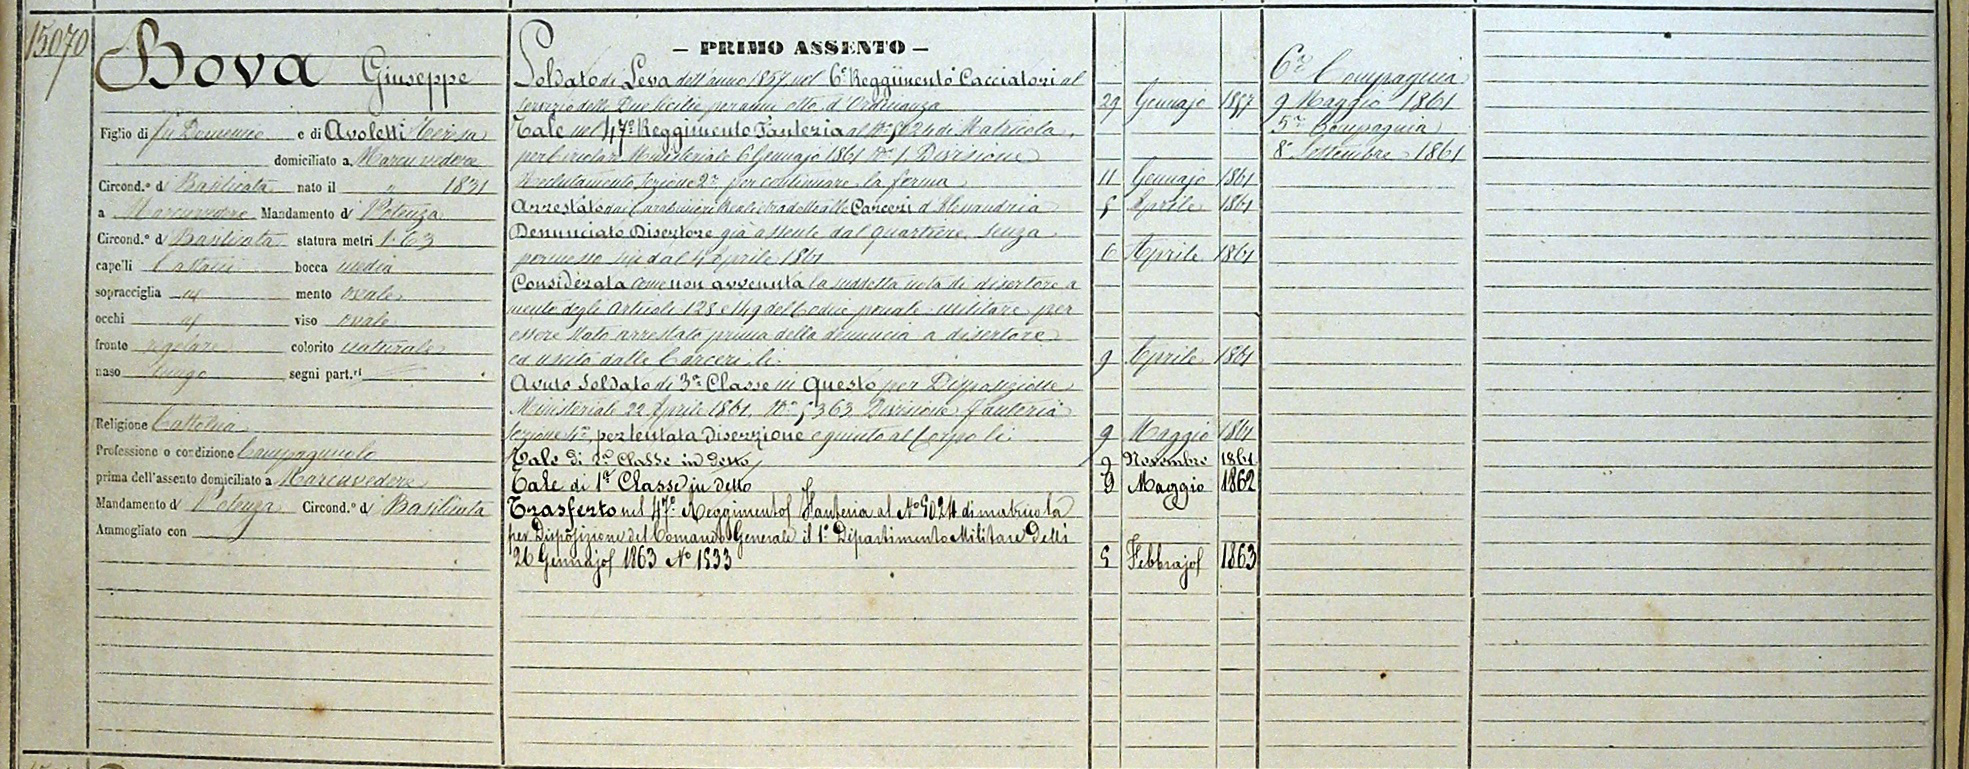 15070
Bova Giuseppe
Figlio di fu Domenico e di Avoletti Teresa
domiciliato a Marcuvedere
Circond.º di Basilicata nato il " 1831
a Marcuvedere Mandamento di Potenza
Circond.º di Basilicata statura metri 1.63
capelli Castani bocca media
sopracciglia id mento ovale
occhi id viso ovale
fronte regolare colorito naturale
naso lungo segni part.ri
Religione Cattolica
Professione o condizione Campagnuolo
prima dell'assento domiciliato a Marcuvedere
Mandamento di Potenza Circond.º di Basilicata
Ammogliato con
– PRIMO ASSENTO –
Soldato di Leva dell'anno 1857 nel 6º Reggimento Cacciatori al
servizio delle Due Sicilie per anni otto d'Ordinanza 29 Gennajo 1857
Tale nel 47º Reggimento Fanteria al Nº 5024 di Matricola,
per Circolar Ministeriale 6 Gennajo 1861 Nº 1. Divisione
Reclutamento Sezione 2ª per continuare la ferma 11 Gennajo 1861
Arrestato dai Carabinieri Reali e tradotto alle Carceri d'Alessandria 5 Aprile 1861
Denunciato Disertore già assente dal quartiere, senza
permesso sin dal 4 Aprile 1861 6 Aprile 1861
Considerata come non avvenuta la suddetta nota di disertore a
mente degli Articoli 128 e 149 del Codice penale militare per
essere stato arrestato prima della denuncia a disertore
ed uscito dalle Carceri li 9 Aprile 1861
Avuto Soldato di 3ª Classe in Questo per Disposizione
Ministeriale 22 Aprile 1861. Nº 5363 Divisione fanteria
Sezione 4ª per tentata Diserzione e giunto al Corpo li 9 Maggio 1861
Tale di 2ª Classe in detto 9 Novembre 1861
Tale di 1ª Classe in detto 9 Maggio 1862
Trasferto nel 47º Reggimento Fanteria al Nº 5024 di matricola
per Disposizione del Comando Generale il 1º Dipartimento Militare delli
26 Gennajo 1863 Nº 1533 5 Febbrajo 1863
6ª Compagnia
9 Maggio 1861
5ª Compagnia
8 Settembre 1861